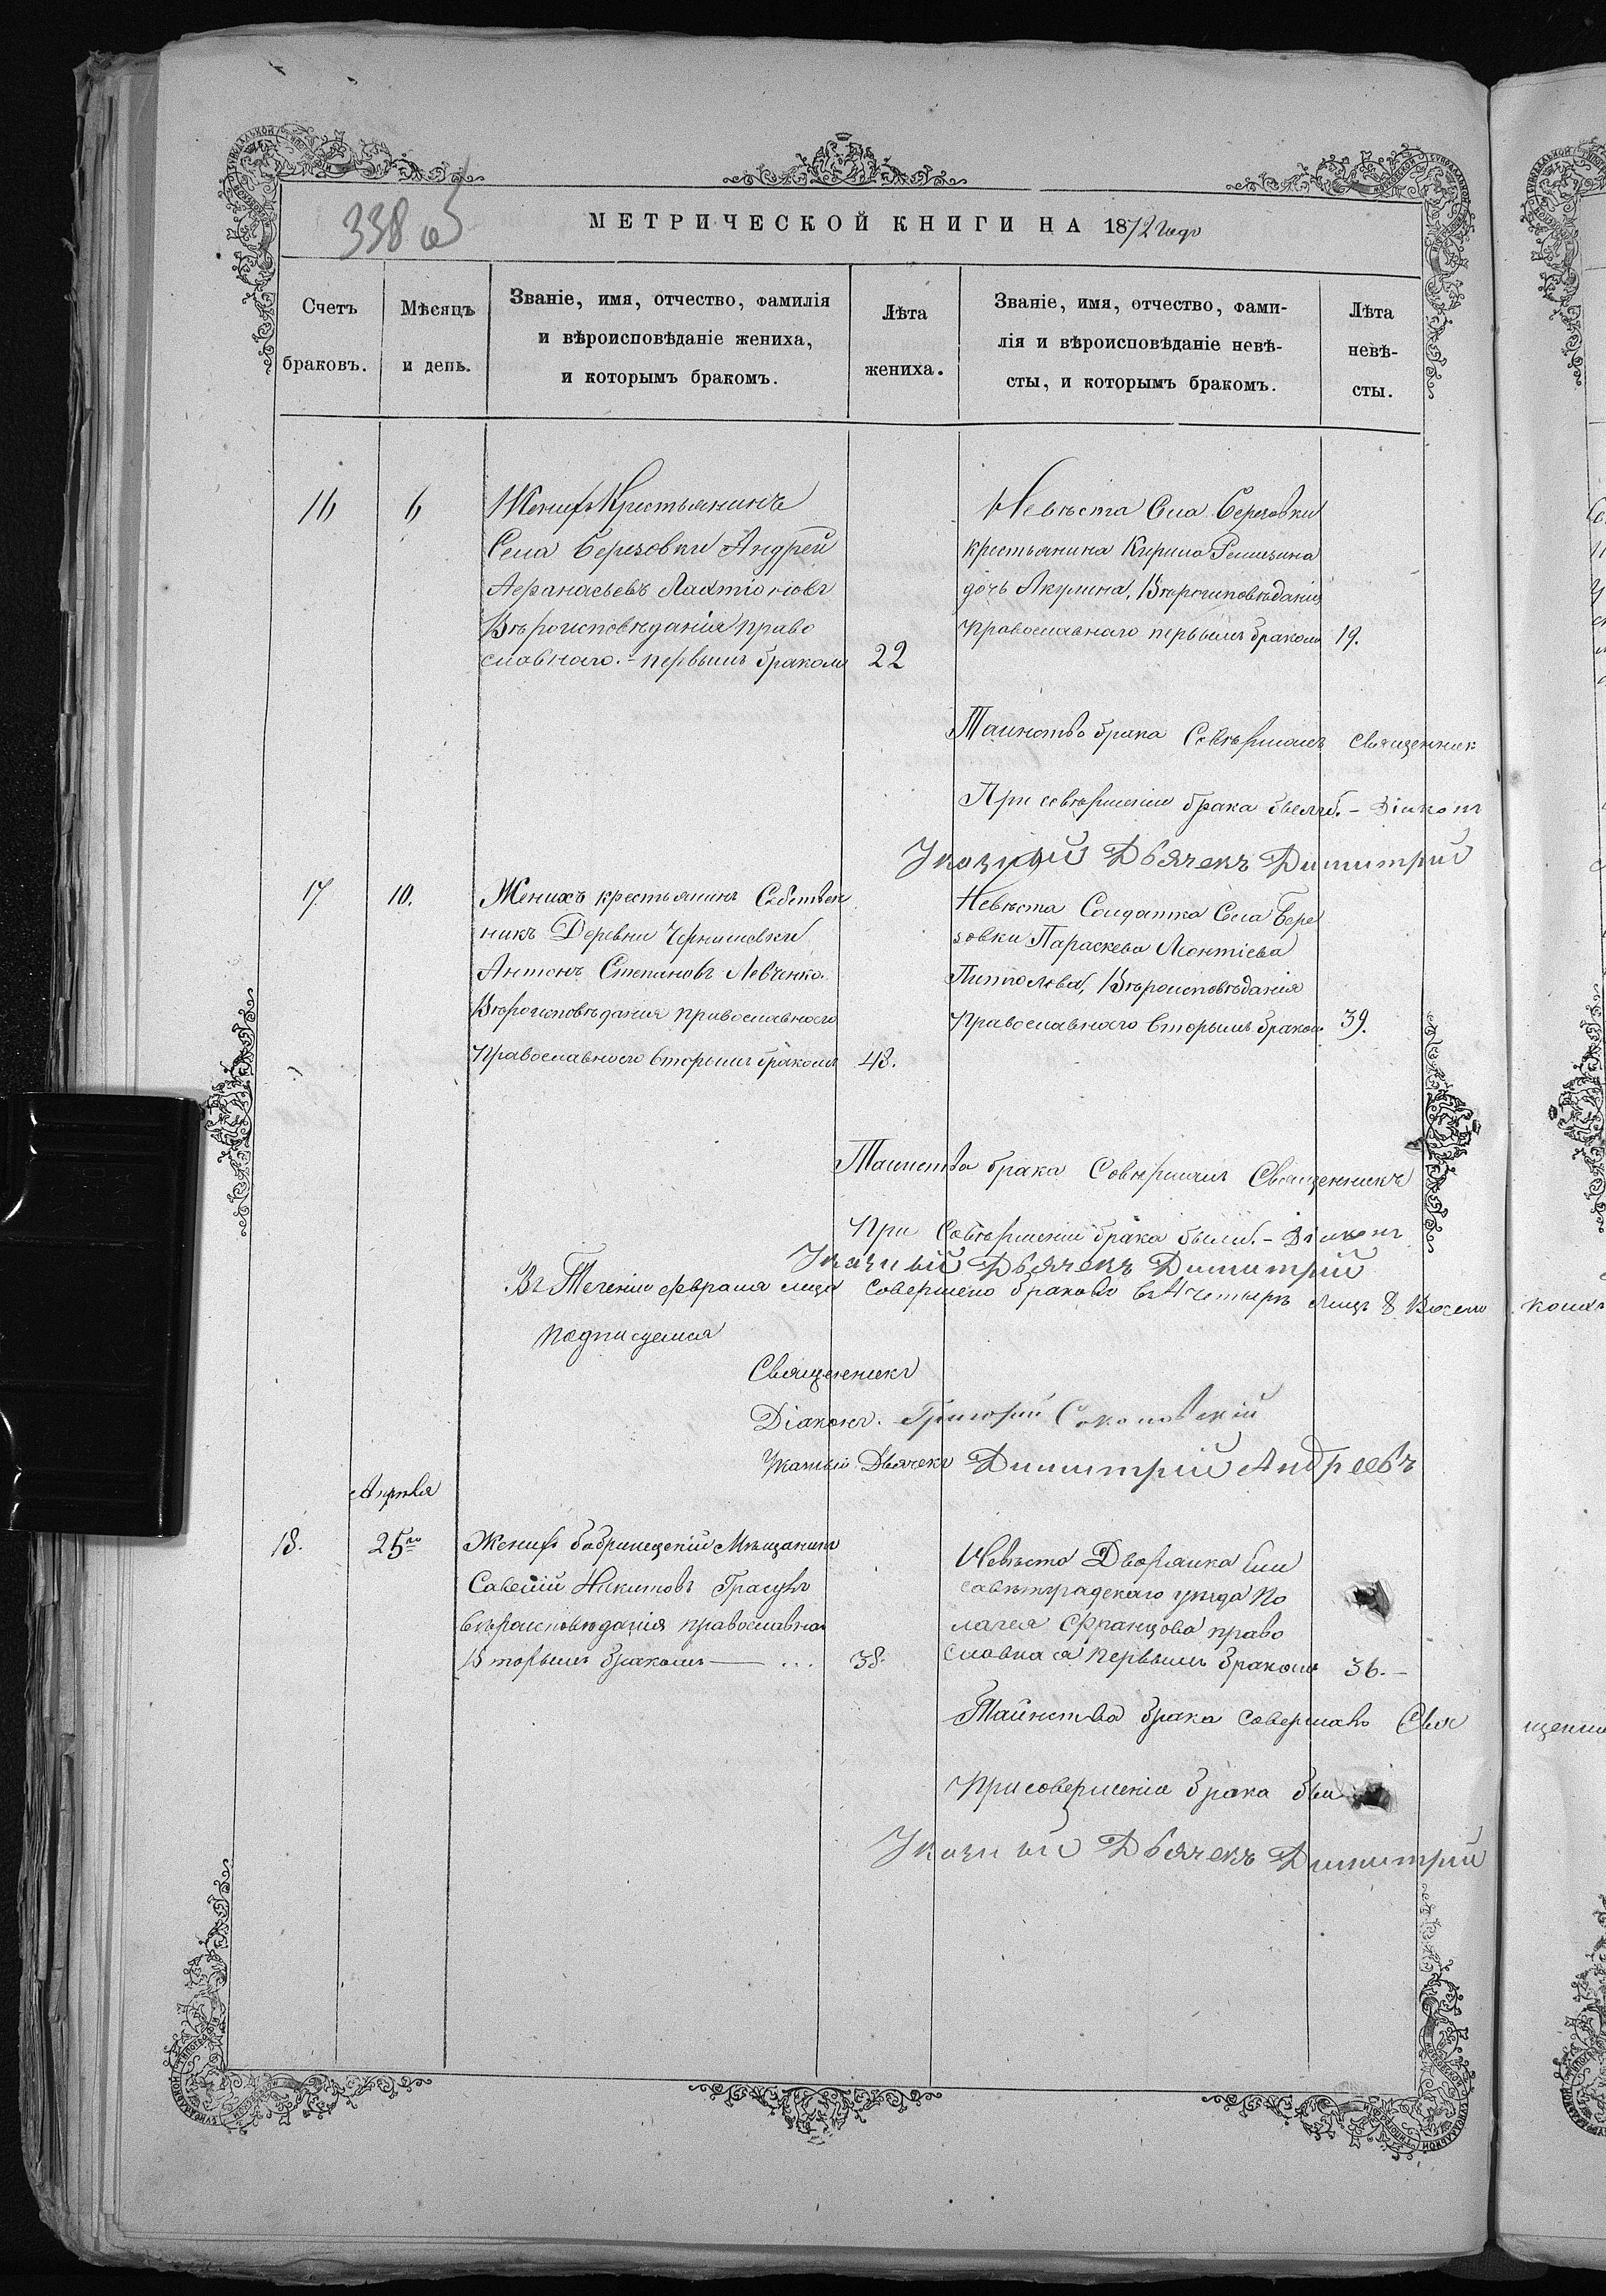 338 об
МЕТРИЧЕСКОЙ КНИГИ НА 1872 годъ
Счетъ браковъ.
Мѣсяцъ и день.
Званіе, имя, отчество, фамилія
и вѣроисповѣданіе жениха,
и которымъ бракомъ.
Лѣта жениха.
Званіе, имя, отчество, фами-
лія и вѣроисповѣданіе невѣ-
сты, и которымъ бракомъ.
Лѣта невѣ-
сты.
16
6
Женихъ Крестьянинъ
Села Березовки Андрей
Афанасьевъ Лахтіоновъ
Вѣроисповѣданія право
славнаго. - первымъ бракомъ 22
Невѣста Села Березовки
крестьянина Кирила Ремизина
дочь Акулина, Вѣроисповѣданія
Православнаго первымъ бракомъ 19.
Таинство брака Совѣршалъ священник
При совѣршеніи брака были. - Діаконъ
Указный Дьячекъ Димитрий
17
10.
Женихъ крестьянинъ Собствен
никъ Деревни
Антонъ Степановъ Левченко
Вѣроисповѣдания православнаго
Православнаго вторымъ бракомъ 48.
Невѣста Солдатка Села Бере
зовки Параскева Леонтіева
Вѣроисповѣданія
Православнаго вторымъ бракомъ 39.
Таинства брака Совѣршалъ Священникъ
При Совѣршеніи брака были. - Діаконъ
Указный Дьячекъ Димитрий
Въ Теченіи февраля мца совершено браковъ 4 четырѣ лицъ 8 Восем
подписуемся
Священникъ
Діаконъ. Григорий Соколовскій
Указный Дьячекъ Димитрій Андреевъ
Апрѣля
18.
25го
Женихъ бобринецкій Мѣщанинъ
Савелій Никитовъ
вѣроисповѣданія православна
Вторымъ бракомъ — ... 38.
Невѣста Дворянка Ели
саветградскаго уезда По
лагея Францова право
славная первымъ бракомъ 36. -
Таинства брака совершалъ Свя
При совершеніи брака бы
Указный Дьячекъ Димитрий